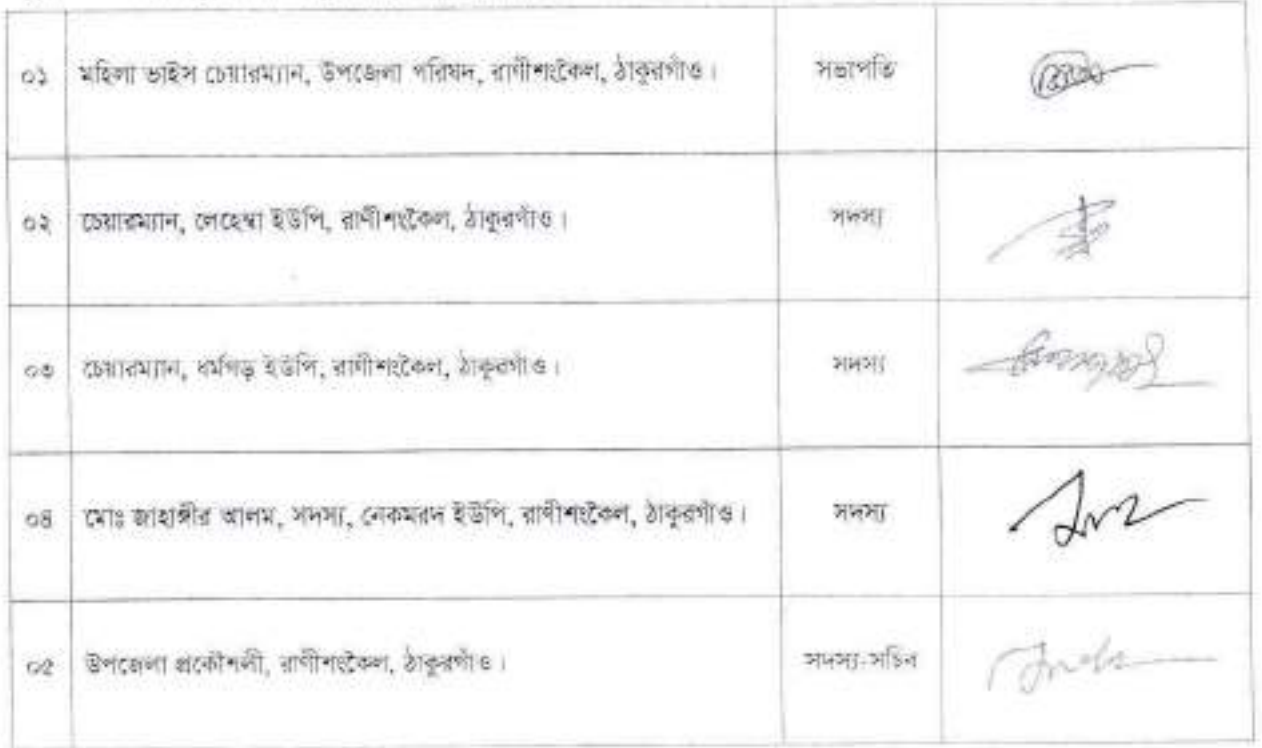 ০১ মহিলা ভাইস চেয়ারম্যান, উপজেলা পরিষদ, রাণীশংকৈল, ঠাকুরগাঁও। সভাপতি
০২ চেয়ারম্যান, লেহেম্বা ইউপি, রাণীশংকৈল, ঠাকুরগাঁও। সদস্য
০৩ চেয়ারম্যান, ধর্মগড় ইউপি, রাণীশংকৈল, ঠাকুরগাঁও। সদস্য
০৪ মোঃ জাহাঙ্গীর আলম, সদস্য, নেকমরদ ইউপি, রাণীশংকৈল, ঠাকুরগাঁও। সদস্য
০৫ উপজেলা প্রকৌশলী, রাণীশংকৈল, ঠাকুরগাঁও। সদস্য-সচিব